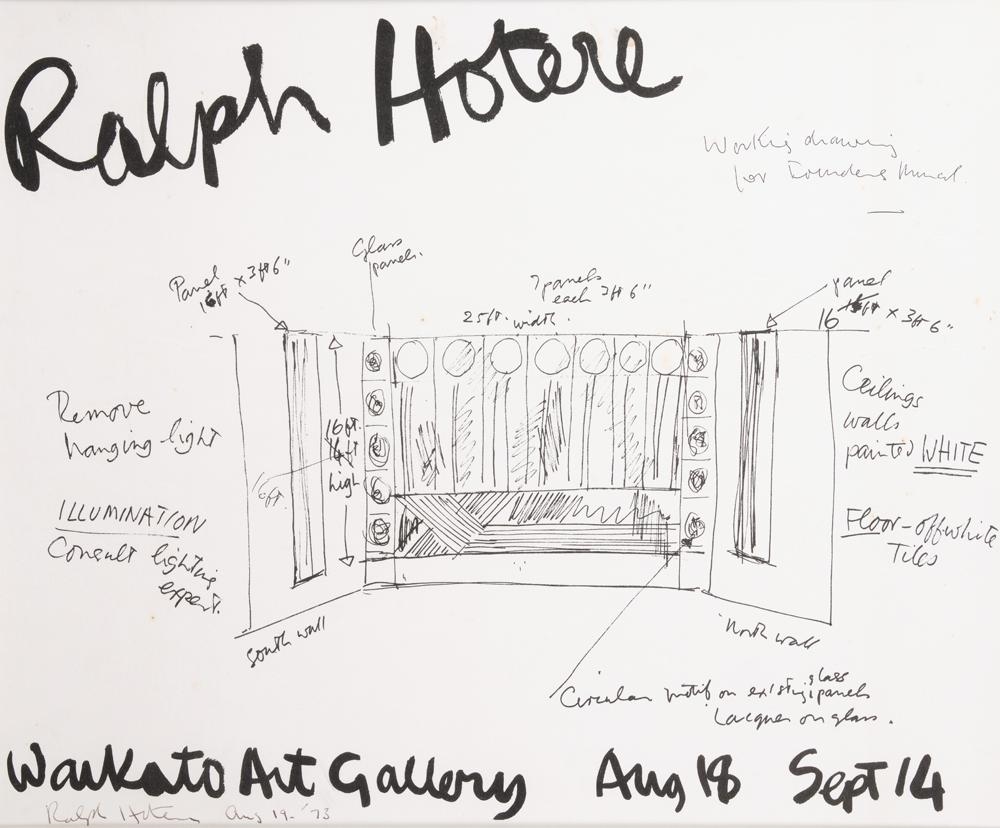 Ralph Hotere
Working drawing
for Founders Mural.
Glass
panels.
Panel
16ft x 3ft 6"
7 panels
each 3ft 6"
25ft. width.
panel
16 x 3ft 6"
Remove
hanging light
ILLUMINATION
Consult lighting
expert.
16ft.
14ft
high
16ft
Ceilings
walls
painted WHITE
Floor-offwhite
Tiles
South wall
North wall
Circular motif on existing glass panels
Lacquer on glass.
Waikato Art Gallery Aug 18 Sept 14
Ralph Hotere Aug 19-'73